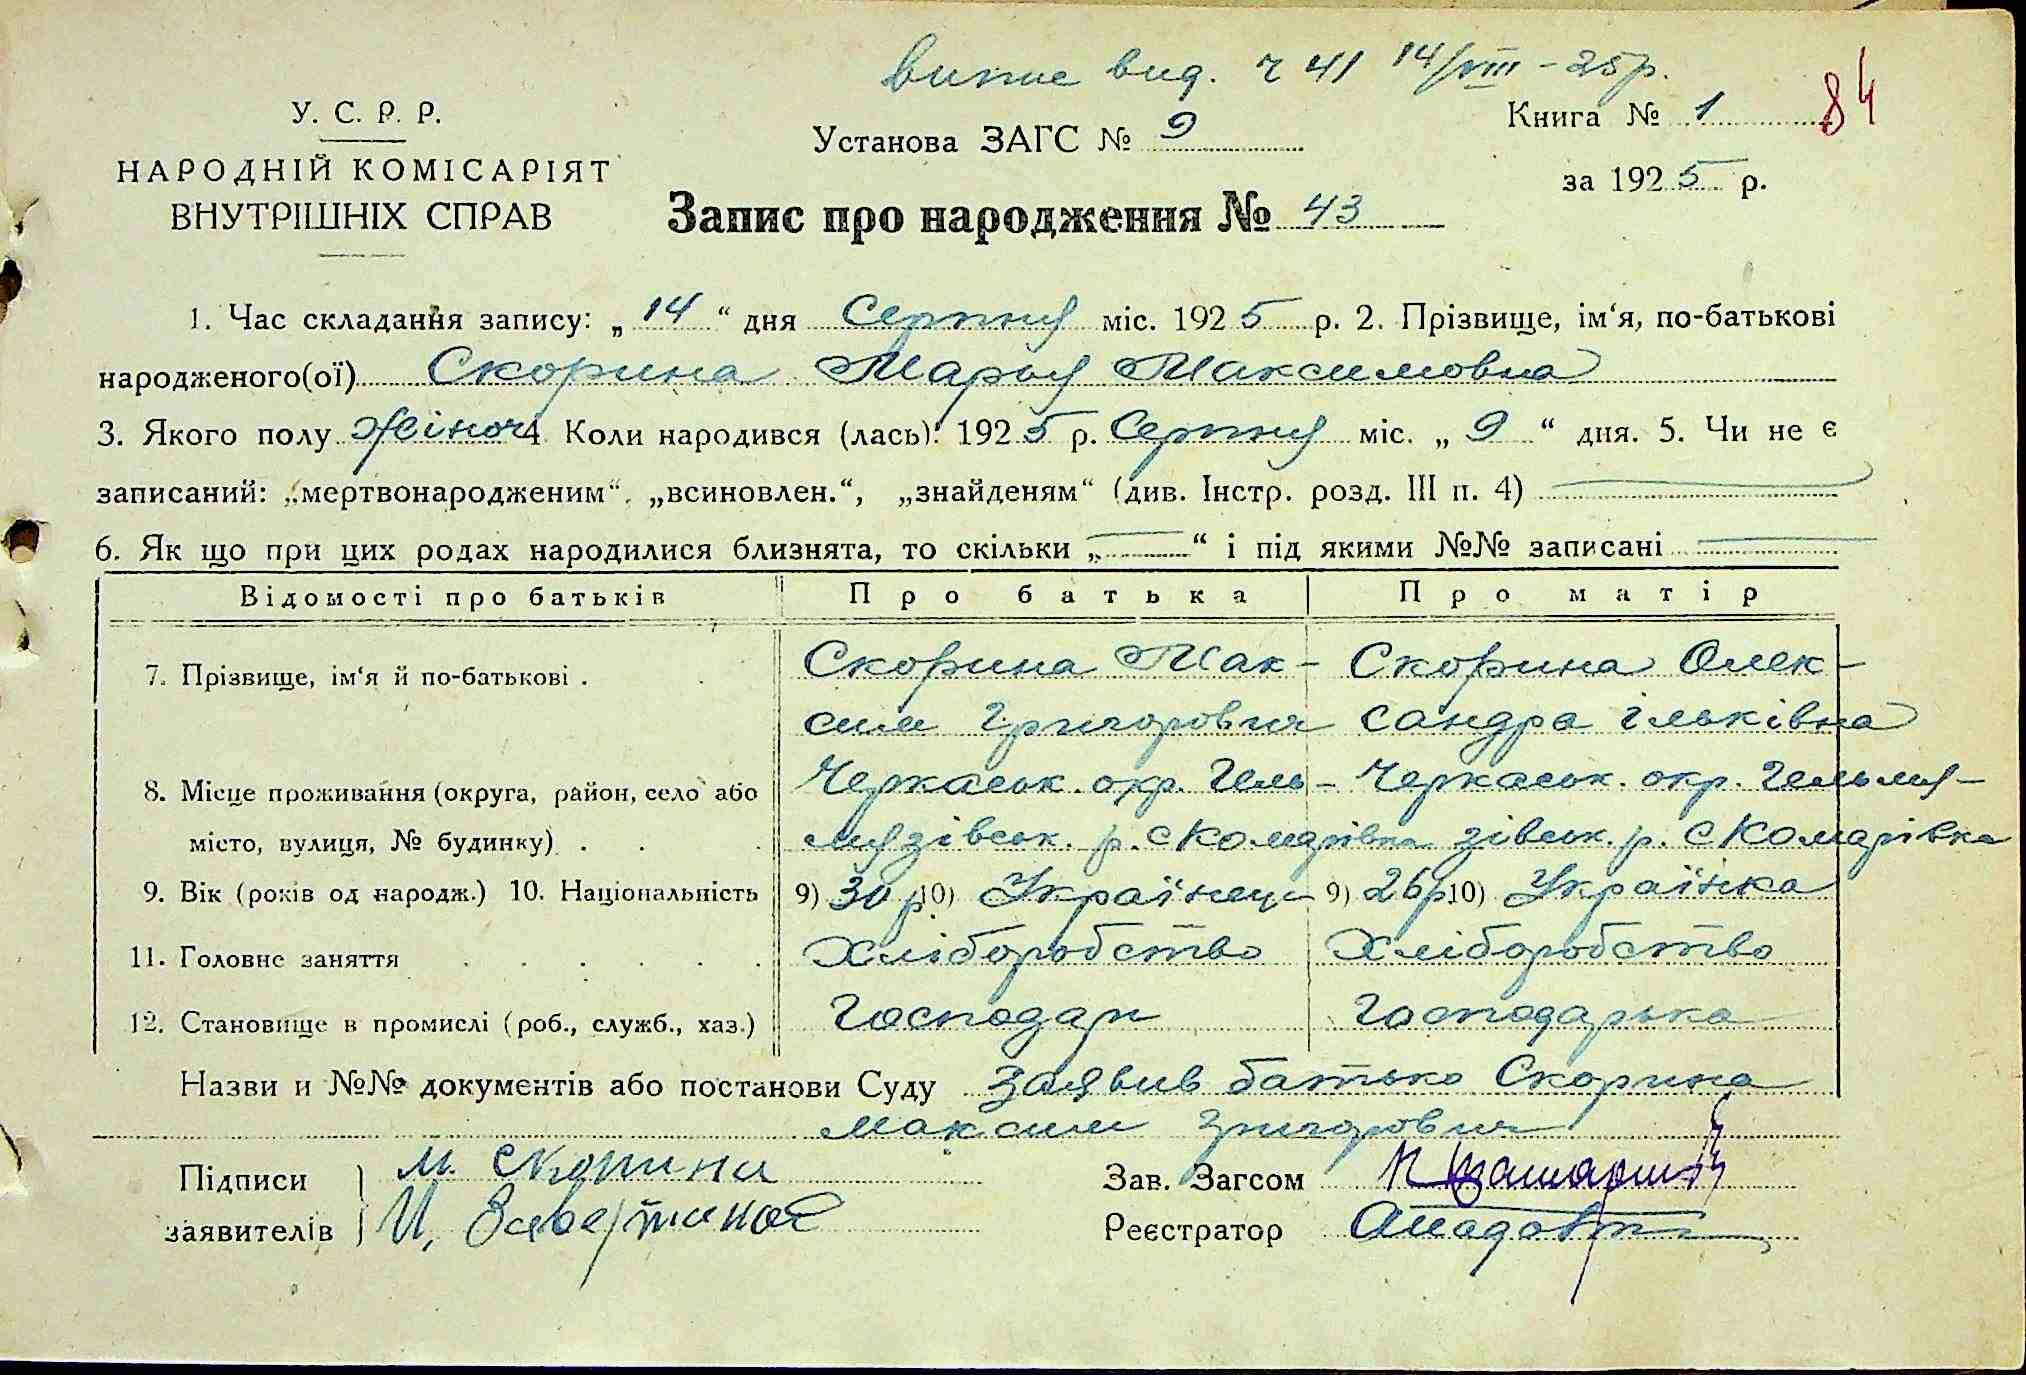 випис вид. ч 41 14/VIII – 25р.
У. С. Р. Р.
НАРОДНІЙ КОМІСАРІЯТ
ВНУТРІШНІХ СПРАВ
Установа ЗАГС № 9
Книга № 1 84
за 1925 р.
Запис про народження № 43
1. Час складання запису: „14“ дня Серпня міс. 1925 р. 2. Прізвище, ім‘я, по-батькові
народженого(ої) Скорина Марья Максимовна
3. Якого полу жіноч 4. Коли народився (лась): 1925 р. Серпня міс. „9“ дня. 5. Чи не є
записаний: „мертвонародженим“, „всиновлен.“, „знайденям“ (див. Інстр. розд. III п. 4)
6. Як що при цих родах народилися близнята, то скільки „—“ і під якими №№ записані —
Відомості про батьків Про батька Про матір
7. Прізвище, ім‘я й по-батькові . Скорина Мак- Скорина Олек-
сим Григорович сандра Ільківна
8. Місце проживання (округа, район, село або Черкаськ. окр. Гель- Черкаськ. окр. Гельмя-
місто, вулиця, № будинку) . . . мязівськ. р. с Комарівка зівськ. р. с Комарівка
9. Вік (років од народж.) 10. Національність 9) 30 р 10) Українець 9) 26 р 10) Українка
11. Головне заняття . . . . . . Хліборобство Хліборобство
12. Становище в промислі (роб., служб., хаз.) Господар Господарька
Назви и №№ документів або постанови Суду Заявив батько Скорина
Максим Григорович
Підписи М. Скорина Зав. Загсом
заявителів И. Реєстратор